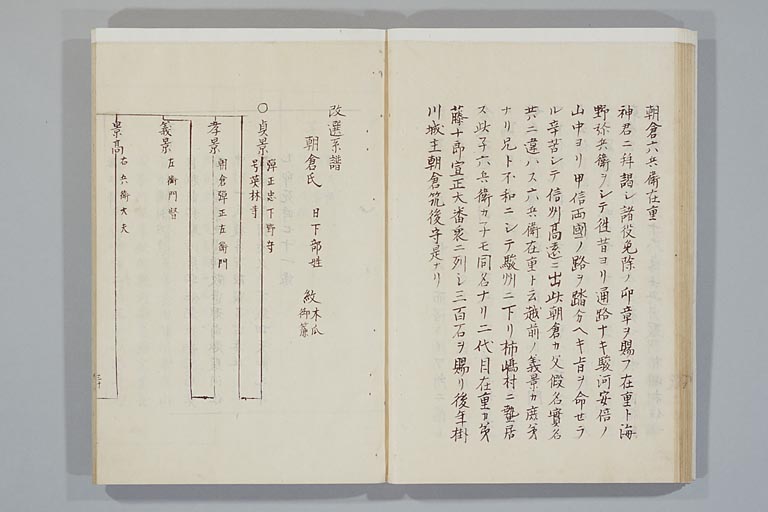 朝倉六兵衛在重
神君ニ拜謁シ諸役免除ノ印章ヲ賜フ在重ト海
野弥兵衛ヲシテ徃昔ヨリ通路ナキ駿河安倍ノ
山中ヨリ甲信両國ノ路ヲ踏分ヘキ旨ヲ命セラ
ル辛苦シテ信州髙遠ニ出此朝倉カ父假名實名
共ニ違ハス六兵衛在重ト云越前ノ義景カ庶弟
ナリ兄ト不和ニシテ駿州ニ下リ柿嶋村ニ蟄居
ス此子六兵衛カ子モ同名ナリ二代目在重カ弟
藤十郎宣正大番衆ニ列シ三百石ヲ賜リ後年掛
川城主朝倉筑後守是ナリ
改選系譜
朝倉氏 日下部姓 紋木瓜 御簾
○貞景 弾正忠下野守 号英林寺
孝景 朝倉弾正左衛門
義景 左衛門督
景髙 右兵衛大夫
三十